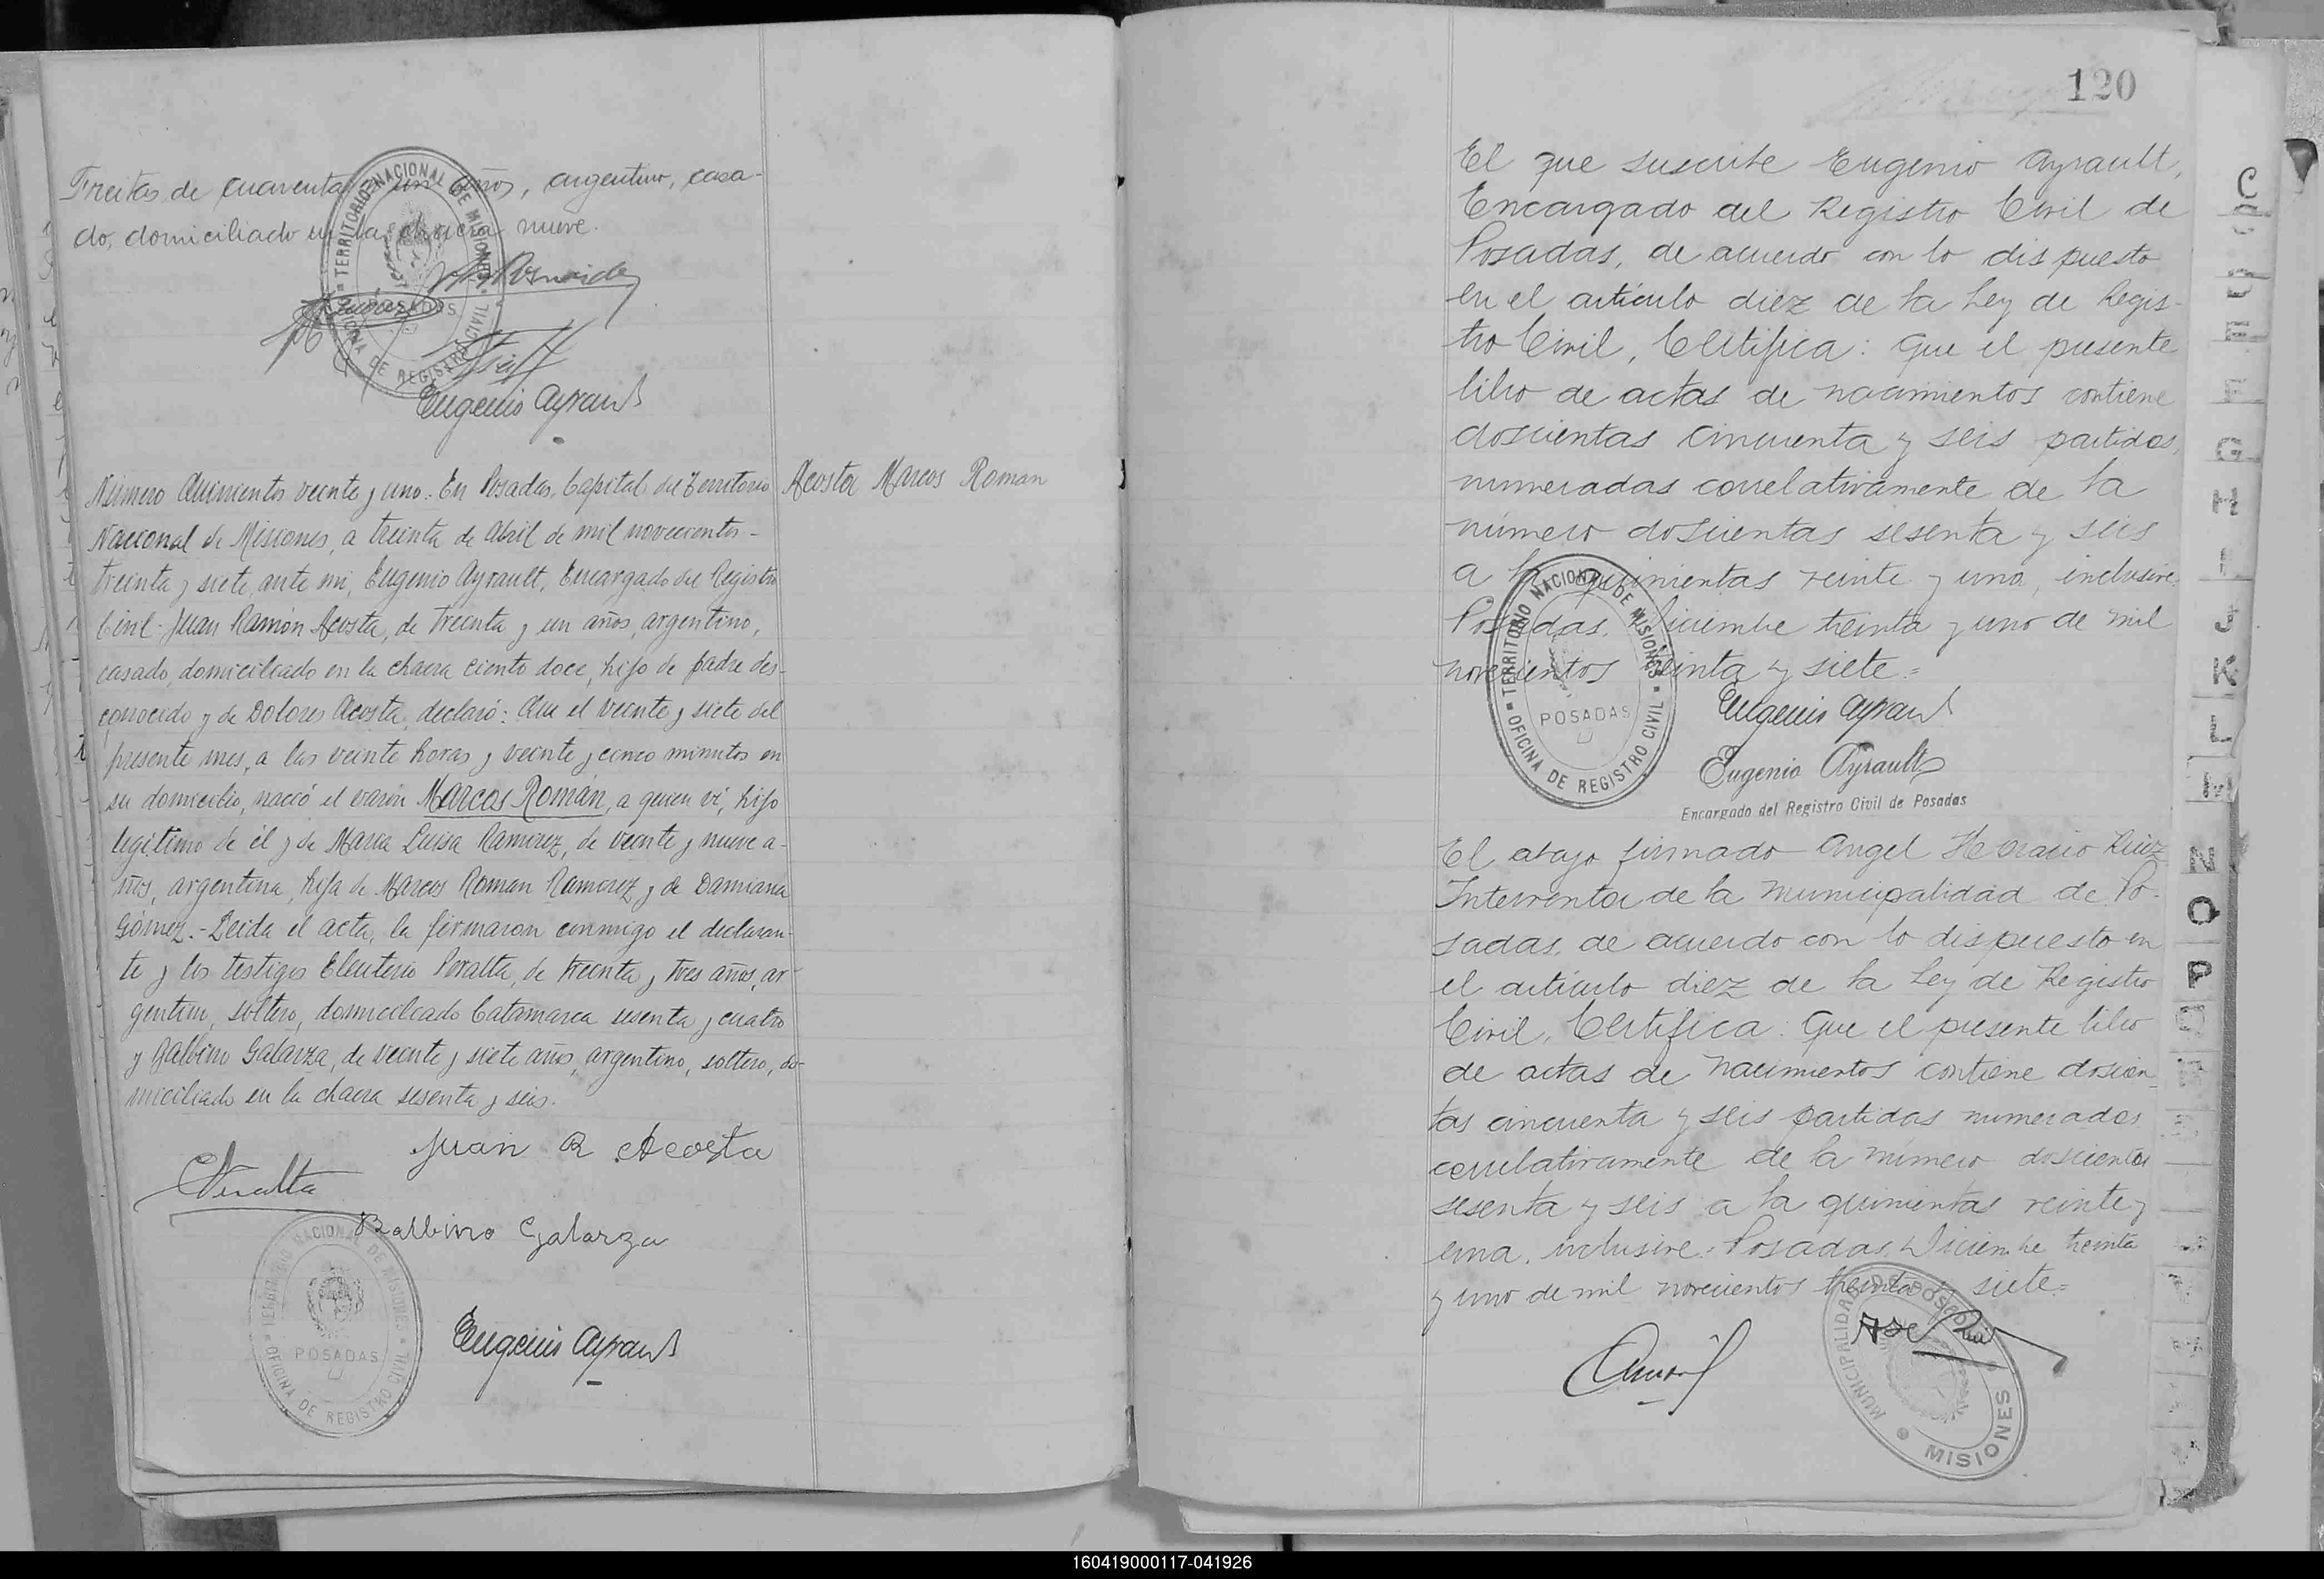 Freitas de cuarenta y un años, argentino, casa-
do, domiciliado en la chacra nueve.
TERRITORIO NACIONAL DE MISIONES
POSADAS
OFICINA DE REGISTRO CIVIL
Eugenio Ayrault
Número Quinientos veinte y uno: En Posadas, Capital del Territorio
Acosta Marcos Roman
Nacional de Misiones, a treinta de Abril de mil novecientos-
treinta y siete, ante mi, Eugenio Ayrault, Encargado del Registro
Civil- Juan Ramón Acosta, de treinta y un años, argentino,
casado, domiciliado en la chacra ciento doce, hijo de padre des-
conocido y de Dolores Acosta, declaró: Que el veinte y siete del
presente mes, a las veinte horas y veinte y cinco minutos en
su domicilio, nació el varón Marcos Román, a quien ví, hijo
legítimo de él y de María Luisa Ramirez, de veinte y nueve a-
ños, argentina, hija de Marcos Roman Ramirez y de Damiana
Gómez.- Leida el acta, la firmaron conmigo el declaran-
te y los testigos Eleuterio Peralta, de treinta y tres años, ar-
gentino, soltero, domiciliado Catamarca sesenta y cuatro
y Balbino Galarza, de veinte y siete años, argentino, soltero, do-
miciliado en la chacra sesenta y seis.
Juan R Acosta
EPeralta
Balbino Galarza
TERRITORIO NACIONAL DE MISIONES
POSADAS
OFICINA DE REGISTRO CIVIL
Eugenio Ayrault
120
El que suscribe Eugenio Ayrault,
Encargado del Registro Civil de
Posadas, de acuerdo con lo dispuesto
en el artículo diez de la Ley de Regis-
tro Civil, Certifica: Que el presente
libro de actas de nacimientos contiene
doscientas cincuenta y seis partidas,
numeradas correlativamente de la
número doscientas sesenta y seis
a la quinientas veinte y una, inclusive.
Posadas, Diciembre treinta y uno de mil
novecientos treinta y siete.=
TERRITORIO NACIONAL DE MISIONES
POSADAS
OFICINA DE REGISTRO CIVIL
Eugenio Ayrault
Eugenio Ayrault
Encargado del Registro Civil de Posadas
El abajo firmado Angel Horacio Ruiz
Interventor de la Municipalidad de Po-
sadas, de acuerdo con lo dispuesto en
el artículo diez de la Ley de Registro
Civil, Certifica: Que el presente libro
de actas de nacimientos contiene doscien-
tas cincuenta y seis partidas numeradas
correlativamente de la número doscientas
sesenta y seis a la quinientas veinte y
una, inclusive.- Posadas, Diciembre treinta
y uno de mil novecientos treinta y siete=
MUNICIPALIDAD DE POSADAS
MISIONES
C
D
E
F
G
H
I
J
K
L
M
N
O
P
160419000117-041926